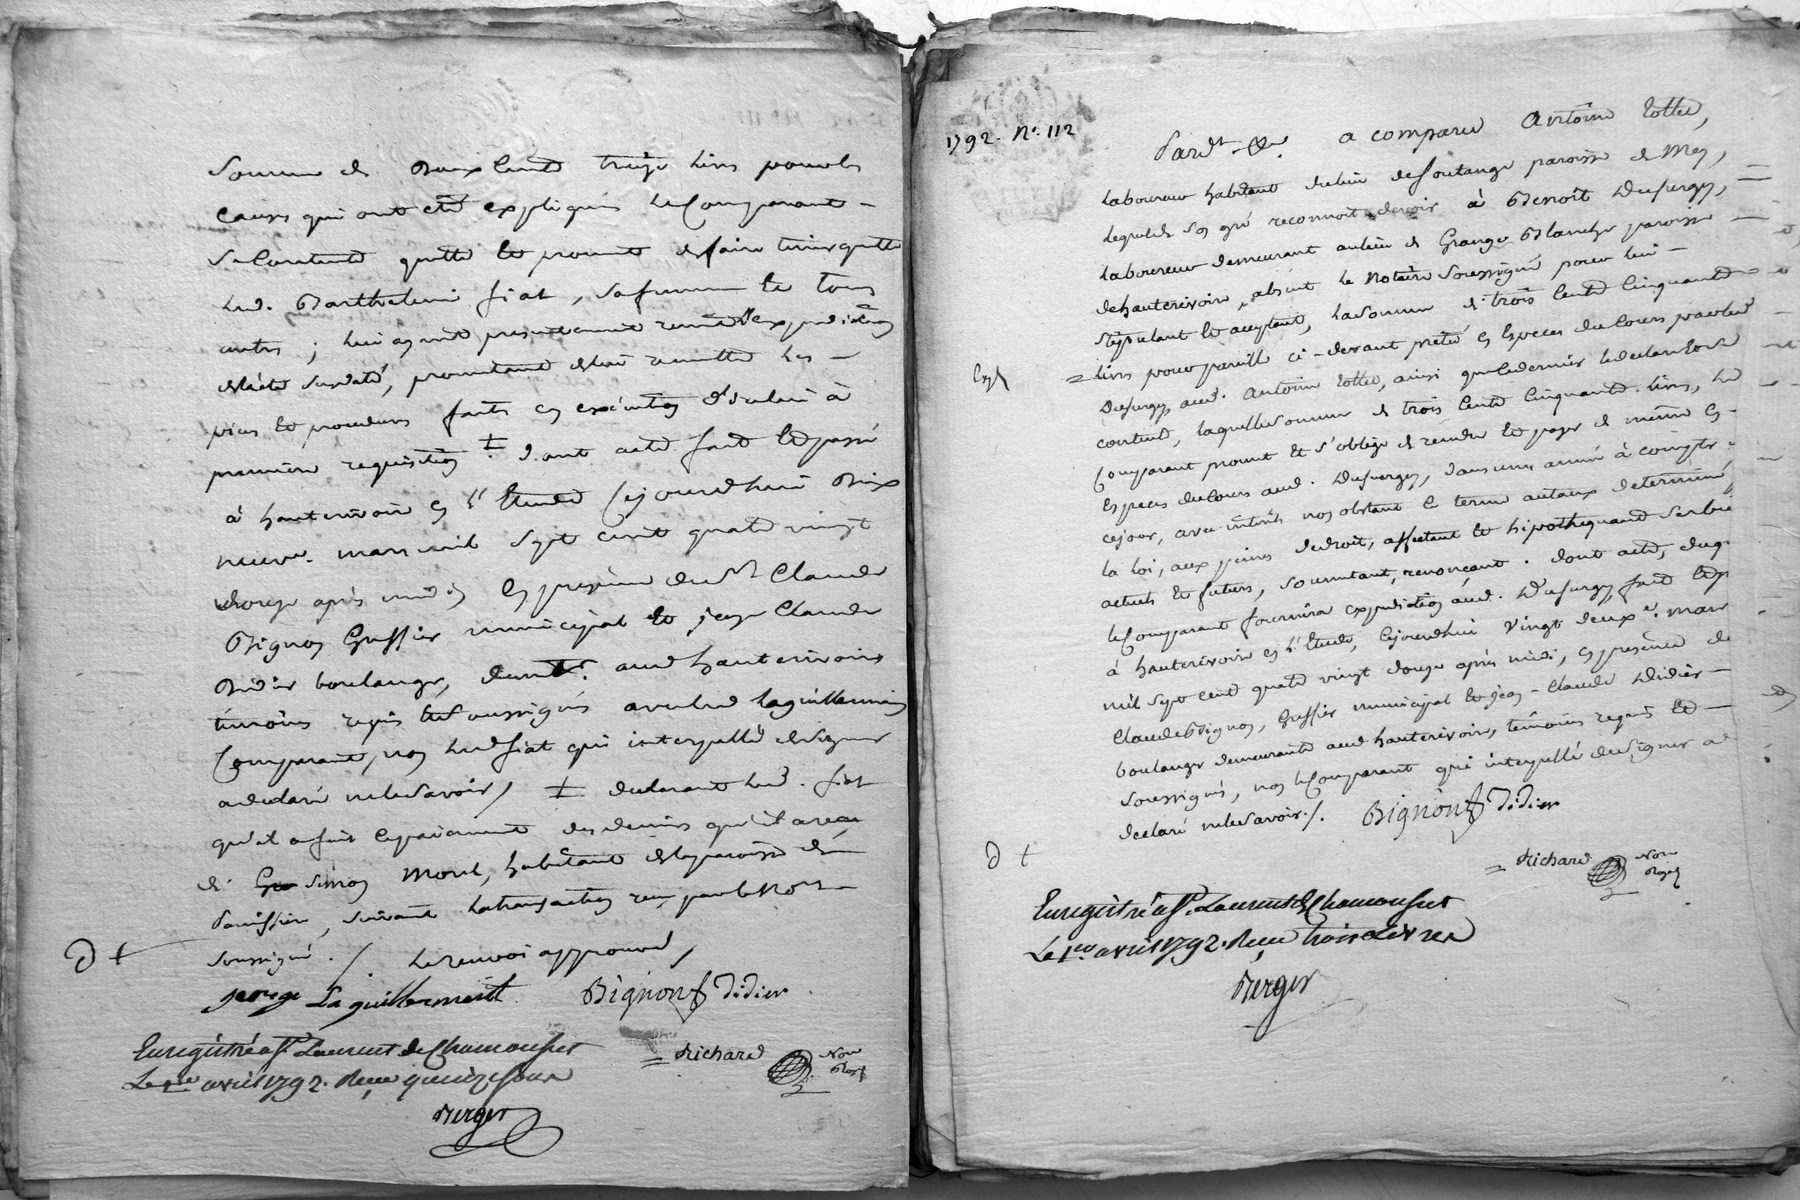 Somme de deux cent treize livres pour les
causes qui ont été expliquées le Comparant
se Contente quitte et promet de faire tenir quitte
led. Barthelemi fiat, sa femme et tous
autres; lui ayant presentement remis expedition
de l'acte susdaté, promettant de lui remettre les
pieces et procedures faites en exécution d'icelui à
premiere requisition ‡ dont acte fait et passé
à hauterivoire en l'Etude Cejourdhui dix
neuve. mars mil sept cent quatre vingt
douze après midi En presence du Sr Claude
Bignon Greffier municipal et jean Claude
Didier boulanger, demts. aud hauterivoire
témoins requis et Soussignés avec led Laguillermin
Comparant, non led fiat qui interpellé de signer
a declaré ne le savoir ./ ‡ declarant led. fiat
qu'il a fait le paiement des deniers qu'il a reçu
de Simon Morel, habitant de la paroisse de
suivant la transaction reçue par le Nore
soussigné ./. le renvoi approuvé,
Laguillermin Bignon gf Didier
Enregistré à St. Laurent de Chamousset
Le 1er avril 1792. Reçu quinze sous
Richard Nore
Royal
Berger
1792. No. 112
Pardt. &e. a comparu Antoine
laboureur habitant du lieu de Soutange paroisse de Meys,
lequel de son gré reconnoit devoir à Benoît Dufurgy,
laboureur demeurant au lieu de Grange Blanche paroisse
de hauterivoire, absent le Notaire Soussigné pour lui
stipulant et acceptant, la somme de trois Cent Cinquante
Exp.
livres pour pareille ci-devant prêtée en Especes du Cours par led
Dufurgy, aud. Antoine ainsi que ce dernier le declare
content, laquelle somme de trois Cent Cinquante livres, le
Comparant promet et s'oblige de rendre et payer de même en
Especes du Cours aud. Dufurgy, dans une année à compter de
cejour, avec intérêts non obstant le terme au taux determiné
la loi, aux peines de droit, affectant et hipothequant ses biens
actuels et futurs, soumettant, renonçant. dont acte, duquel
le Comparant fournira expedition aud. Dufurgy, fait et
à hauterivoire en l'Etude, Cejourdhui Vingt deuxe. mars
mil sept cent quatre vingt douze après midi, en presence de
Claude Bignon, Greffier municipal et jean-Claude Didier
boulanger demeurants aud hauterivoire, témoins requis et
soussignés, non le Comparant qui interpellé de signer a
declaré ne le savoir ./. Bignon gf Didier
Richard Nore
Royal
Enregistré à St. Laurent de Chamousset
Le 1er avril 1792. Reçu trois Livres
Berger